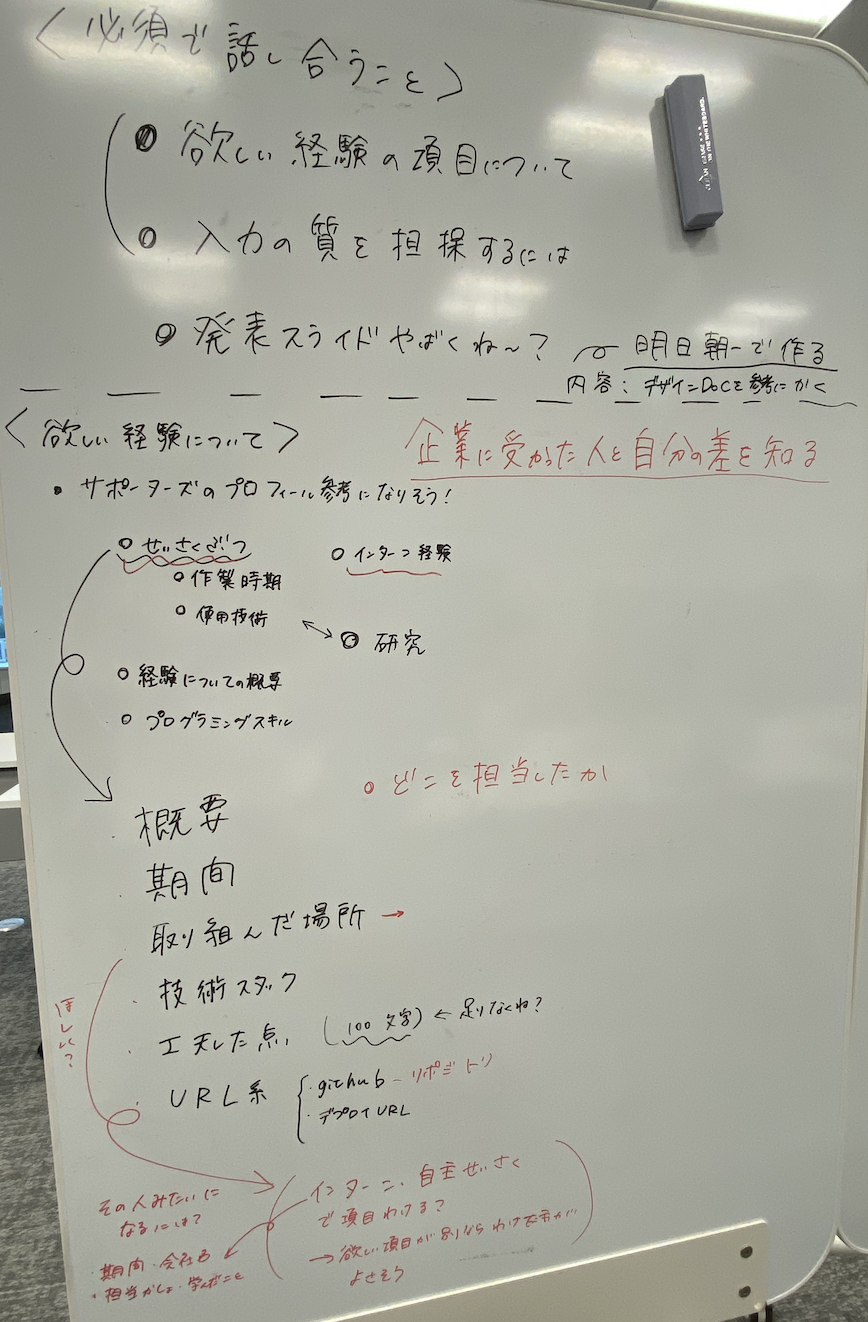 <必須で話し合うこと>
欲しい経験の項目について
入力の質を担保するには
発表スライドやばくね〜?
明日朝一で作る
内容:デザインDocを参考にかく
<欲しい経験について>
企業に受かった人と自分の差を知る
・サポーターズのプロフィール参考になりそう!
せいさくぶつ
インターン経験
作製時期
使用技術
研究
経験についての概要
プログラミングスキル
どこを担当したか
概要
期間
取り組んだ場所 →
・技術スタック
ほしい?
・工夫した点 (100文字) ← 足りなくね?
・URL系
・github - リポジトリ
・デプロイURL
インターン、自主せいさく
で項目わける?
→欲しい項目が別ならわけた方が
よさそう
その人みたいに
なるには?
・期間・会社名
・担当かしょ・学んだこと